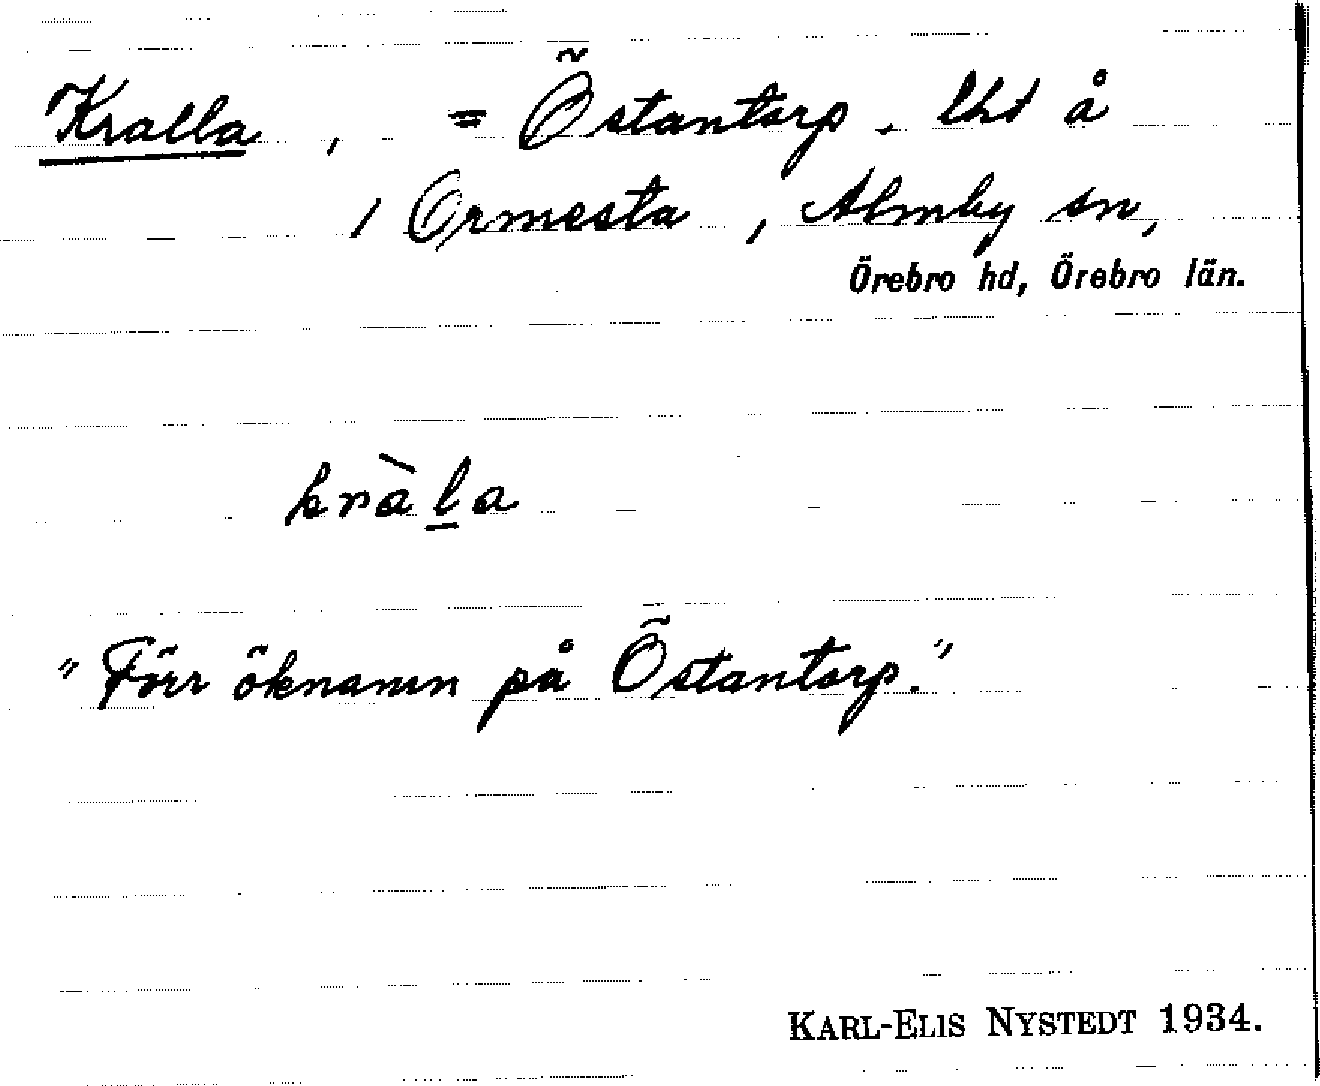 Kralla, = Östantorp. lht å
1 Ormesta, Almby sn,
Örebro hd, Örebro län.
kràl̲a
"Förr öknamn på Östantorp."
KARL-ELIS NYSTEDT 1934.